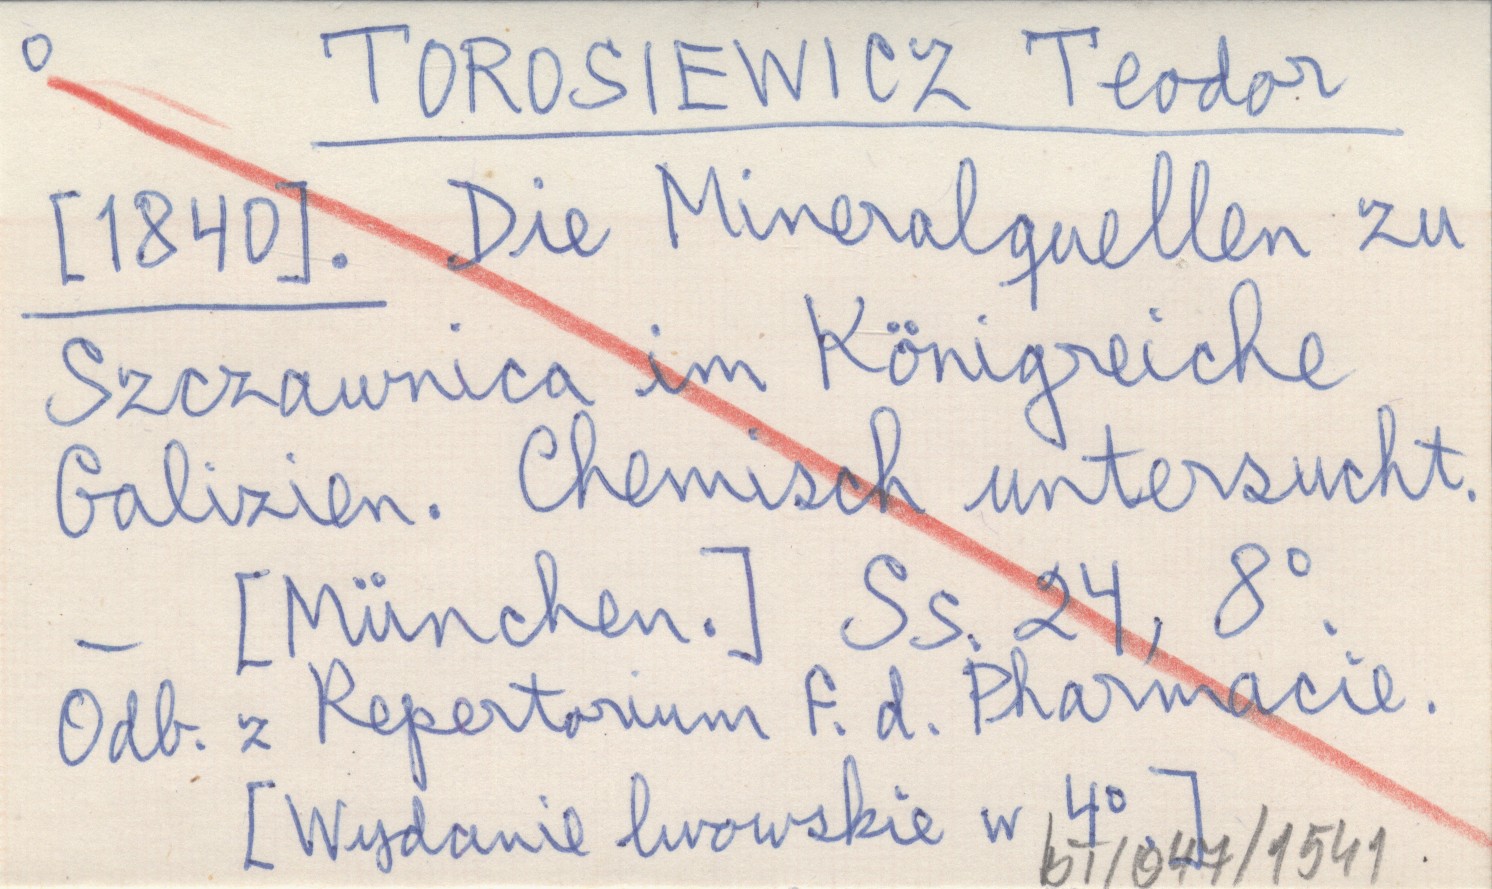 o TOROSIEWICZ Teodor
[1840]. Die Mineralquellen zu
Szczawnica im Königreiche
Galizien. Chemisch untersucht.
– [München.] Ss. 24, 8°.
Odb. z Repertorium f. d. Pharmacie.
[Wydanie lwowskie w 4°.]
/047/1541